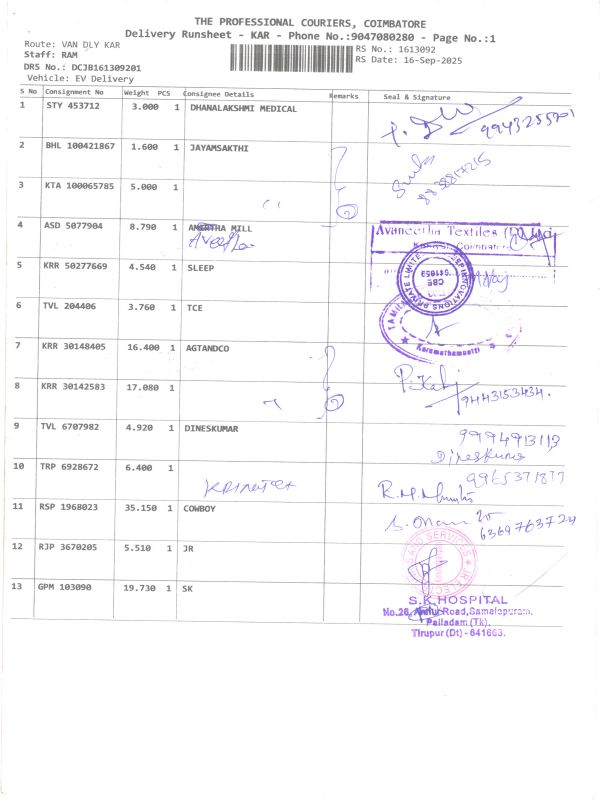 THE PROFESSIONAL COURIERS, COIMBATORE
Delivery Runsheet - KAR - Phone No.:9047080280 - Page No.:1
Route: VAN DLY KAR
RS No.: 1613092
Staff: RAM
RS Date: 16-Sep-2025
DRS No.: DCJB161309201
Vehicle: EV Delivery
S No Consignment No Weight PCS Consignee Details Remarks Seal & Signature
1 STY 453712 3.000 1 DHANALAKSHMI MEDICAL
2 BHL 100421867 1.600 1 JAYAMSAKTHI
3 KTA 100065785 5.000 1
4 ASD 5077904 8.790 1 AMERTHA MILL
Avaneetha Textiles
5 KRR 50277669 4.540 1 SLEEP
6 TVL 204406 3.760 1 TCE
Karumathampatti
7 KRR 30148405 16.400 1 AGTANDCO
8 KRR 30142583 17.080 1
9443153434.
9 TVL 6707982 4.920 1 DINESKUMAR
Dineskumar
10 TRP 6928672 6.400 1
11 RSP 1968023 35.150 1 COWBOY
6369763724
12 RJP 3670205 5.510 1 JR
13 GPM 103090 19.730 1 SK
S.K.HOSPITAL
Road,Samalapuram,
Palladam (Tk),
Tirupur (Dt) - 641663.